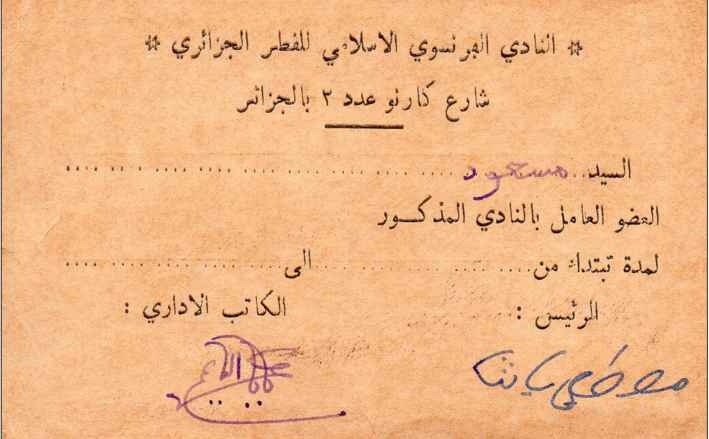 النادي الفرنسوي الاسلامي للقطر الجزائري
شارع كارنو عدد ٢ بالجزائر
السيد مسعود
العضو العامل بالنادي المذكور
لمدة تبتدئ من ........ الى ........
الرئيس : الكاتب الاداري :